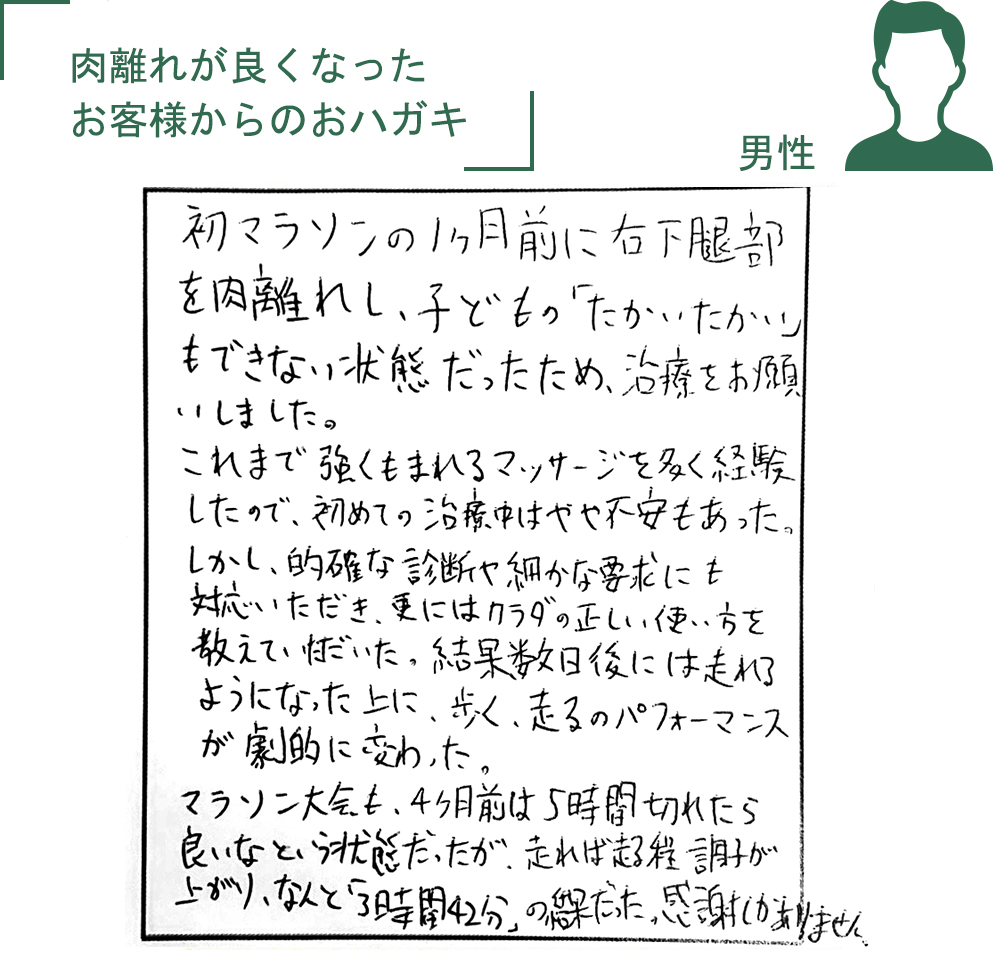 肉離れが良くなった
お客様からのおハガキ
男性
初マラソンの1ヶ月前に右下腿部
を肉離れし、子どもの「たかいたかい」
もできない状態だったため、治療をお願
いしました。
これまで強くもまれるマッサージを多く経験
したので、初めての治療中はやや不安もあった。
しかし、的確な診断や細かな要求にも
対応いただき、更にはカラダの正しい使い方を
教えていただいた。結果数日後には走れる
ようになった上に、歩く、走るのパフォーマンス
が劇的に変わった。
マラソン大会も、4ヶ月前は5時間切れたら
良いなという状態だったが、走れば走る程調子が
上がり、なんと「3時間42分」の結果だった。感謝しかありません。